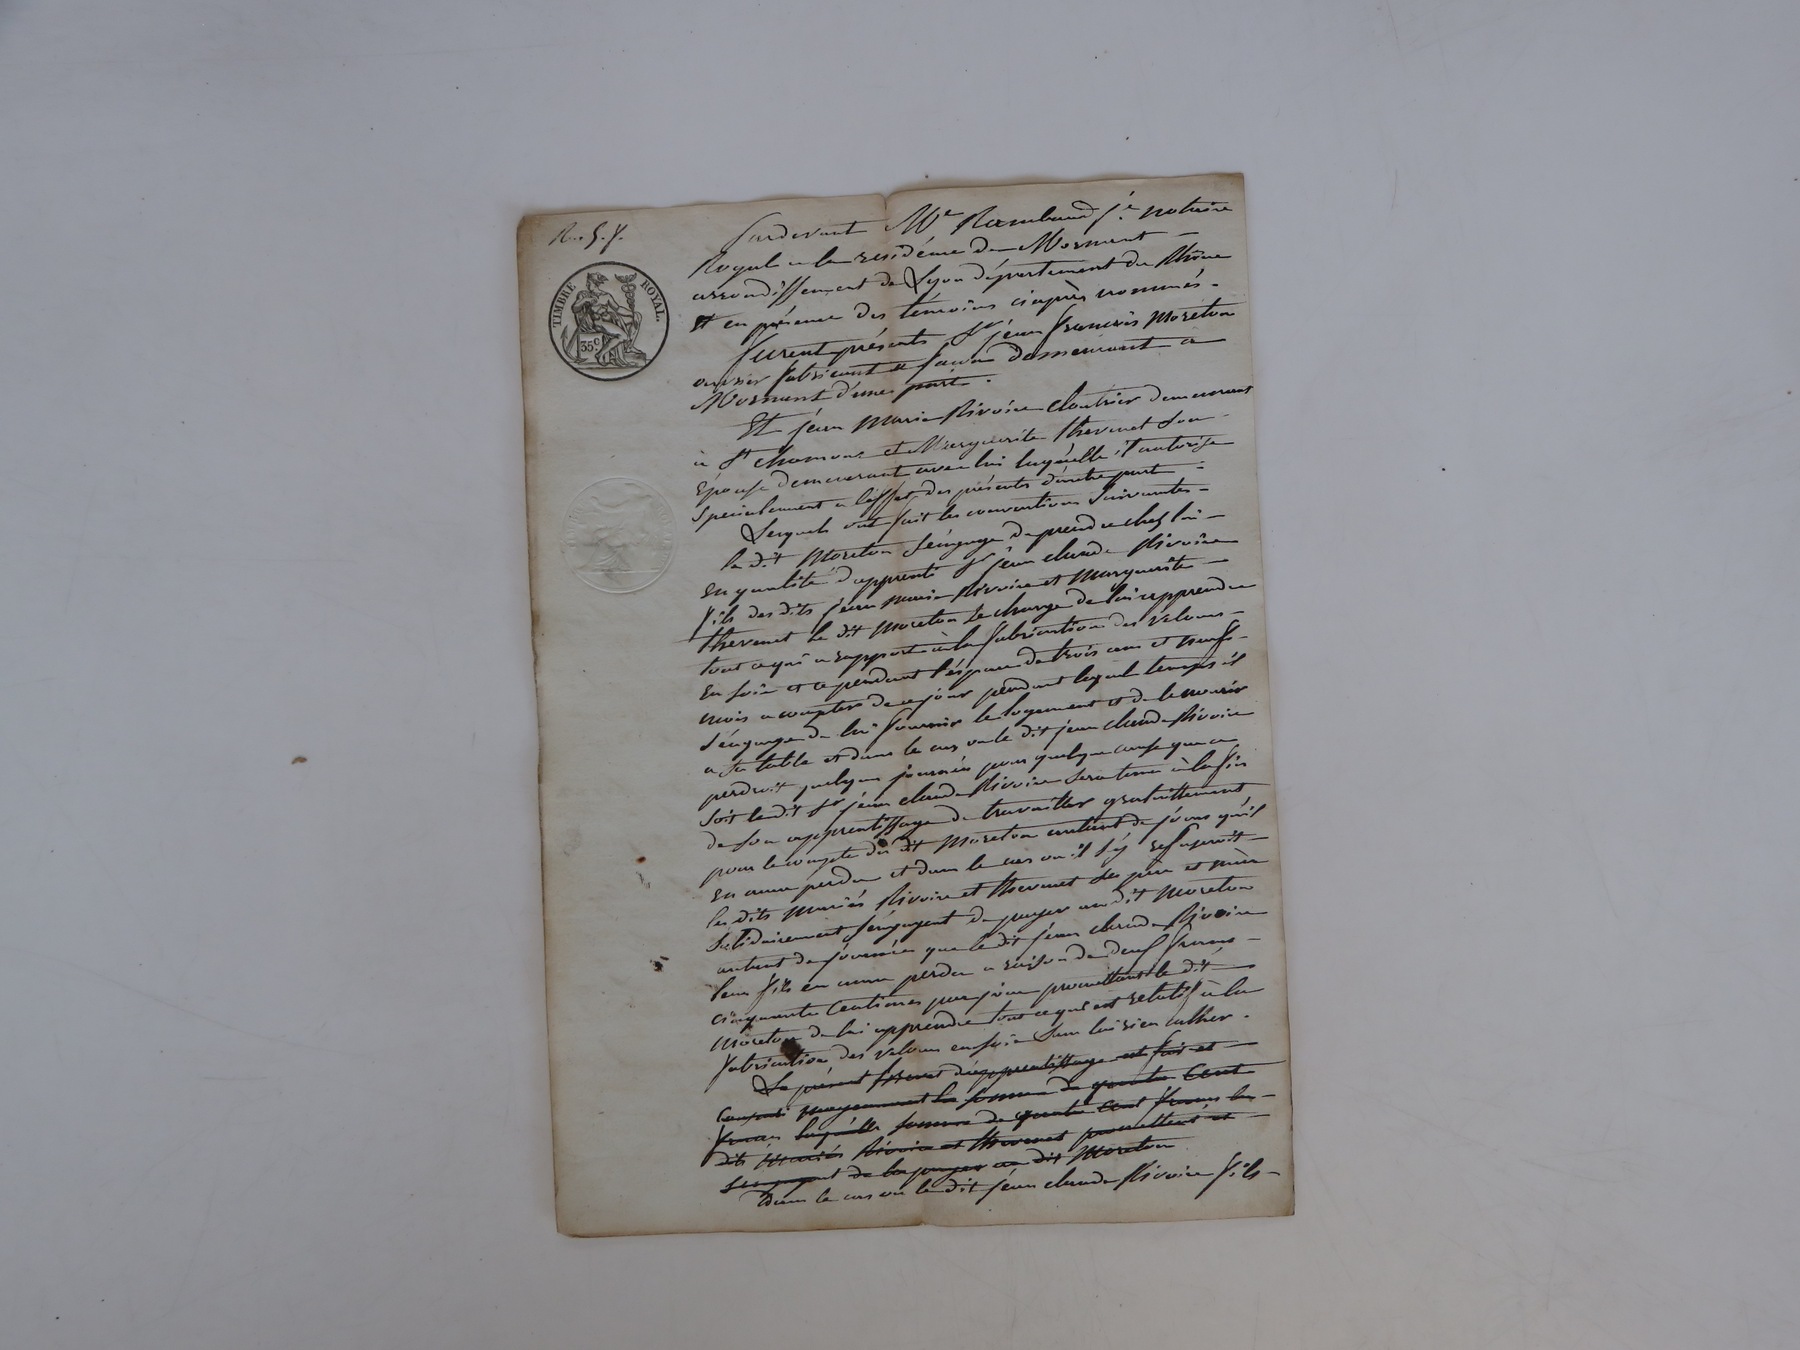 TIMBRE ROYAL.
35c
Pardevant Me Rambaud notaire
Royal a la residence de Mornant
arrondissement de Lyon département du Rhône
Et en présence des témoins ciaprès nommés
furent présents Sr jean francois Moreton
ouvrier fabricant a façon demeurant à
Mornant d'une part.
Et jean Marie Rivoire cloutrier demeurant
à St chamond et Marguerite thevenet son
Epouse demeurant avec lui laquelle il autorise
Specialement a l'effet des présentes d'autre part
Lesquels ont fait les conventions Suivantes
le dit Moreton s'engage de prendre chez lui
en qualité d'apprenti Sr jean claude Rivoire
fils des dits jean marie Rivoire et Marguerite
thevenet le dit Moreton Se charge de lui apprendre
tout ce qui a rapport à la fabrication des velours
en Soie et ce pendant l'éspace de trois ans et neuf
mois a compter de ce jour pendant lequel temps il
s'éngage de lui fournir le logement et de le nourir
a Sa table et dans le cas ou le dit jean claude Rivoire
perdroit quelques journées pour quelque cause que ce
Soit le dit Sr jean claude Rivoire Sera tenu à la fin
de Son apprentissage de travailler gratuittement
pour le compte du dit Moreton autant de jours qu'il
En aura perdu et dans le cas ou il s'y refuseroit
les dits mariés Rivoire et thevenet Ses père et mère
Solidairement S'engagent de payer au dit Moreton
autant de journées que le dit jean claude Rivoire
leur fils en aura perdu a raison de deux francs
cinquante Centimes par jour promettant le dit
Moreton de lui apprendre tout ce qui est relatif à la
fabrication des velours en soie Sans lui rien cacher.
Le présent d'apprentissage est fait et
moyennant la somme de quatre Cent
francs laquelle somme de quatre cent francs les
dits mariés Rivoire et thevenet promettent et
s'engagent de la payer au dit Moreton
Dans le cas ou le dit jean claude Rivoire fils